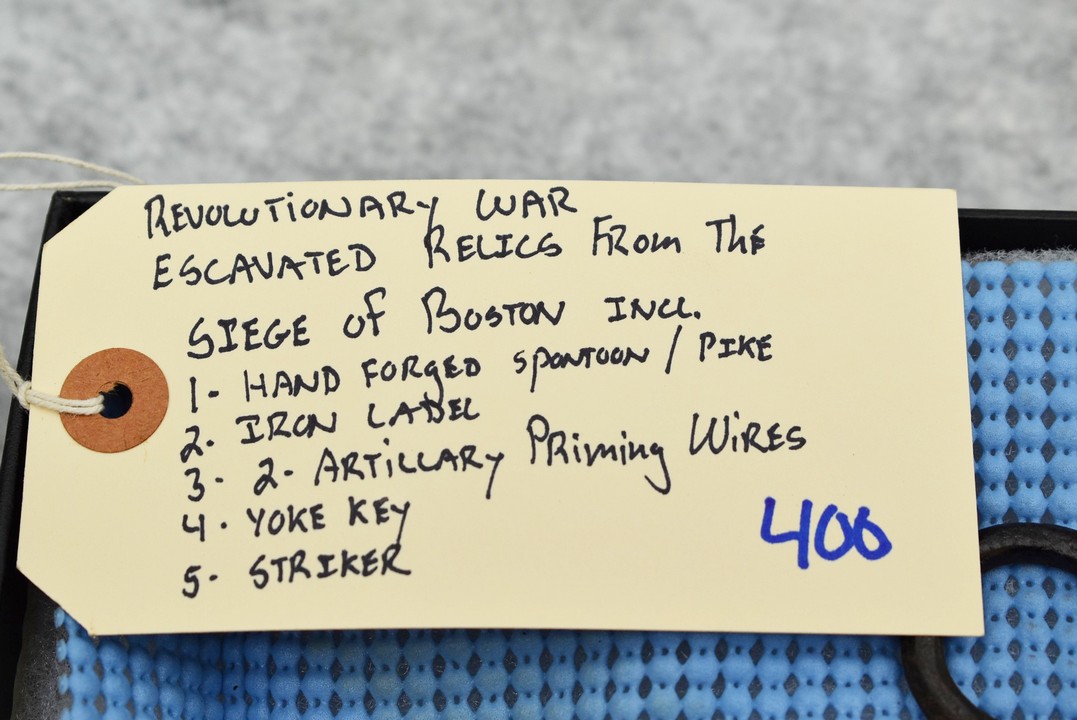 REVOLUTIONARY WAR
ESCAVATED RELICS FROM THE
SIEGE OF BOSTON INCL.
1- HAND FORGED SPONTOON / PIKE
2. IRON LABEL
3- 2- ARTILLARY PRIMING WIRES
4. YOKE KEY
5- STRIKER
400